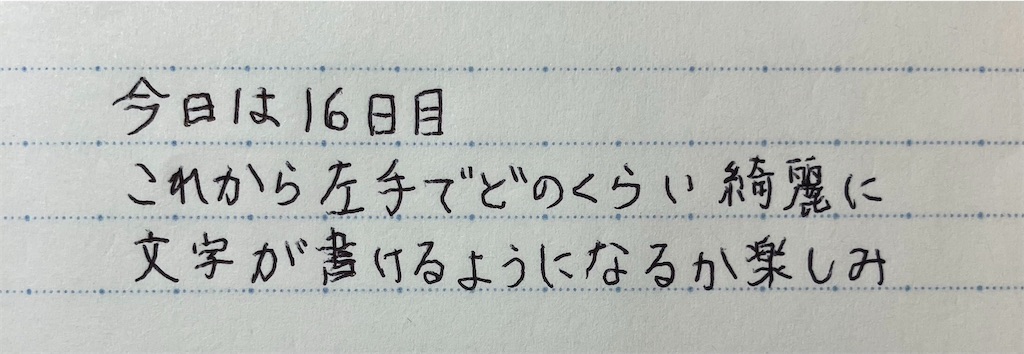 今日は16日目
これから左手でどのくらい綺麗に
文字が書けるようになるか楽しみ